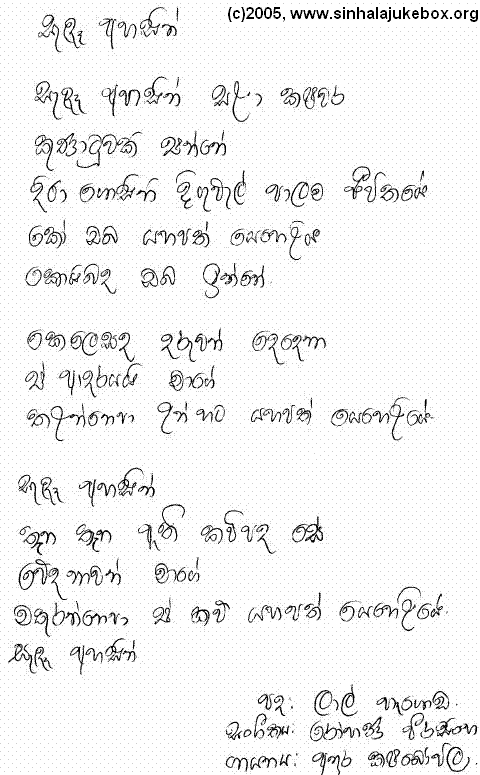 (c)2005, www.sinhalajukebox.org
සැඳෑ අහසින්
සැඳෑ අහසින් කළුවර
කුණාටුවකි එන්නේ
දිරා ගොසිනි දිගුවැල් පාලම ජීවිතයේ
කෝ ඔබ යහපත් යෙහෙළිය
කොයිබද ඔබ ඉන්නේ.
කෙලෙසද දරුවන් දෙදෙනා
ඒ ආදරයයි මාගේ
උන් හට යහපත් යෙහෙළියේ.
සැඳෑ අහසින්
තැන තැන ඇති කවිපද සේ
වේදනාවන් මාගේ
මතුරන්නෙපා ඒ කවි යහපත් යෙහෙළියේ.
සැඳෑ අහසින්
පද: ලාල් හෑගොඩ.
සංගීතය: රෝහණ වීරසිංහ
ගායනය: